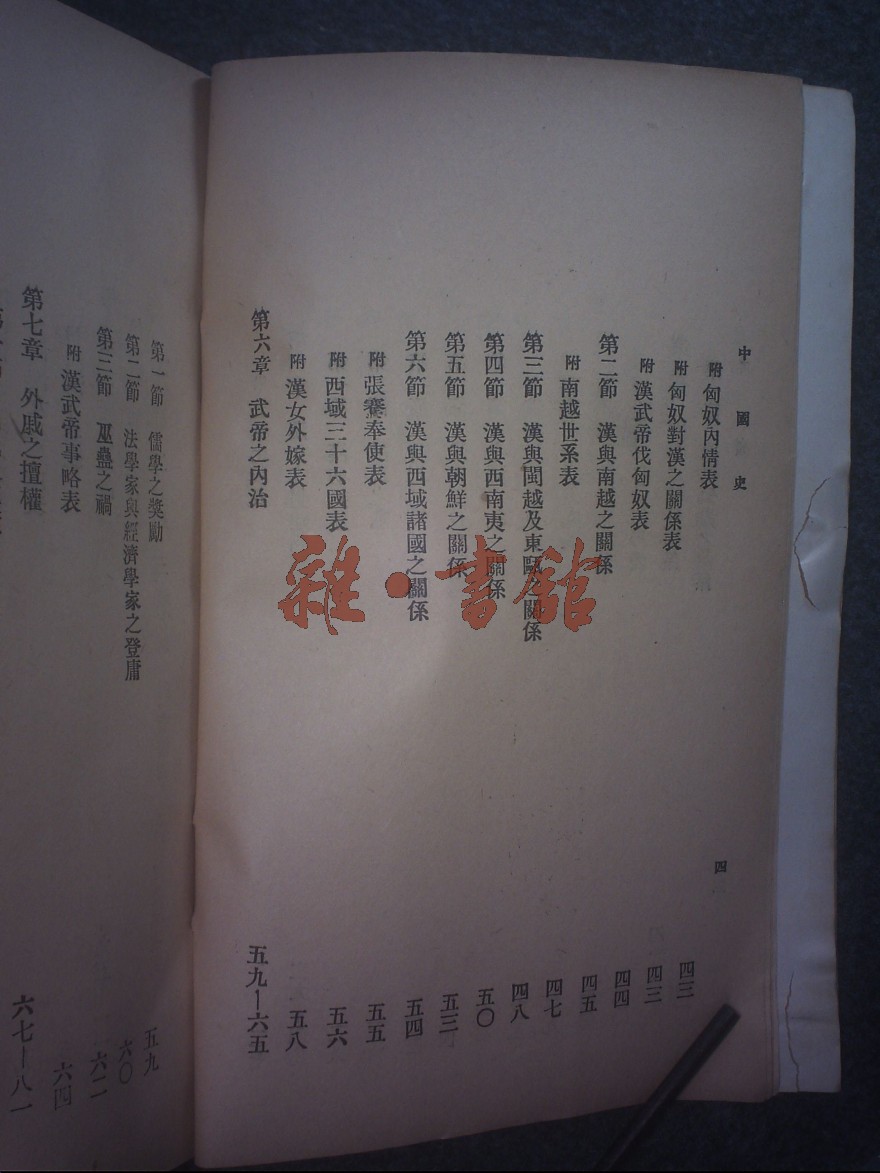 中國史
四
附 匈奴內情表 四三
附 匈奴對漢之關係表 四三
附 漢武帝伐匈奴表 四四
第二節 漢與南越之關係 四五
附 南越世系表 四七
第三節 漢與閩越及東甌之關係 四八
第四節 漢與西南夷之關係 五〇
第五節 漢與朝鮮之關係 五三
第六節 漢與西域諸國之關係 五四
附 張騫奉使表 五五
附 西域三十六國表 五六
附 漢女外嫁表 五八
第六章 武帝之內治 五九—六五
第一節 儒學之獎勵 五九
第二節 法學家與經濟學家之登庸 六〇
第三節 巫蠱之禍 六二
附 漢武帝事略表 六四
第七章 外戚之擅權 六七—八一
雜·書館